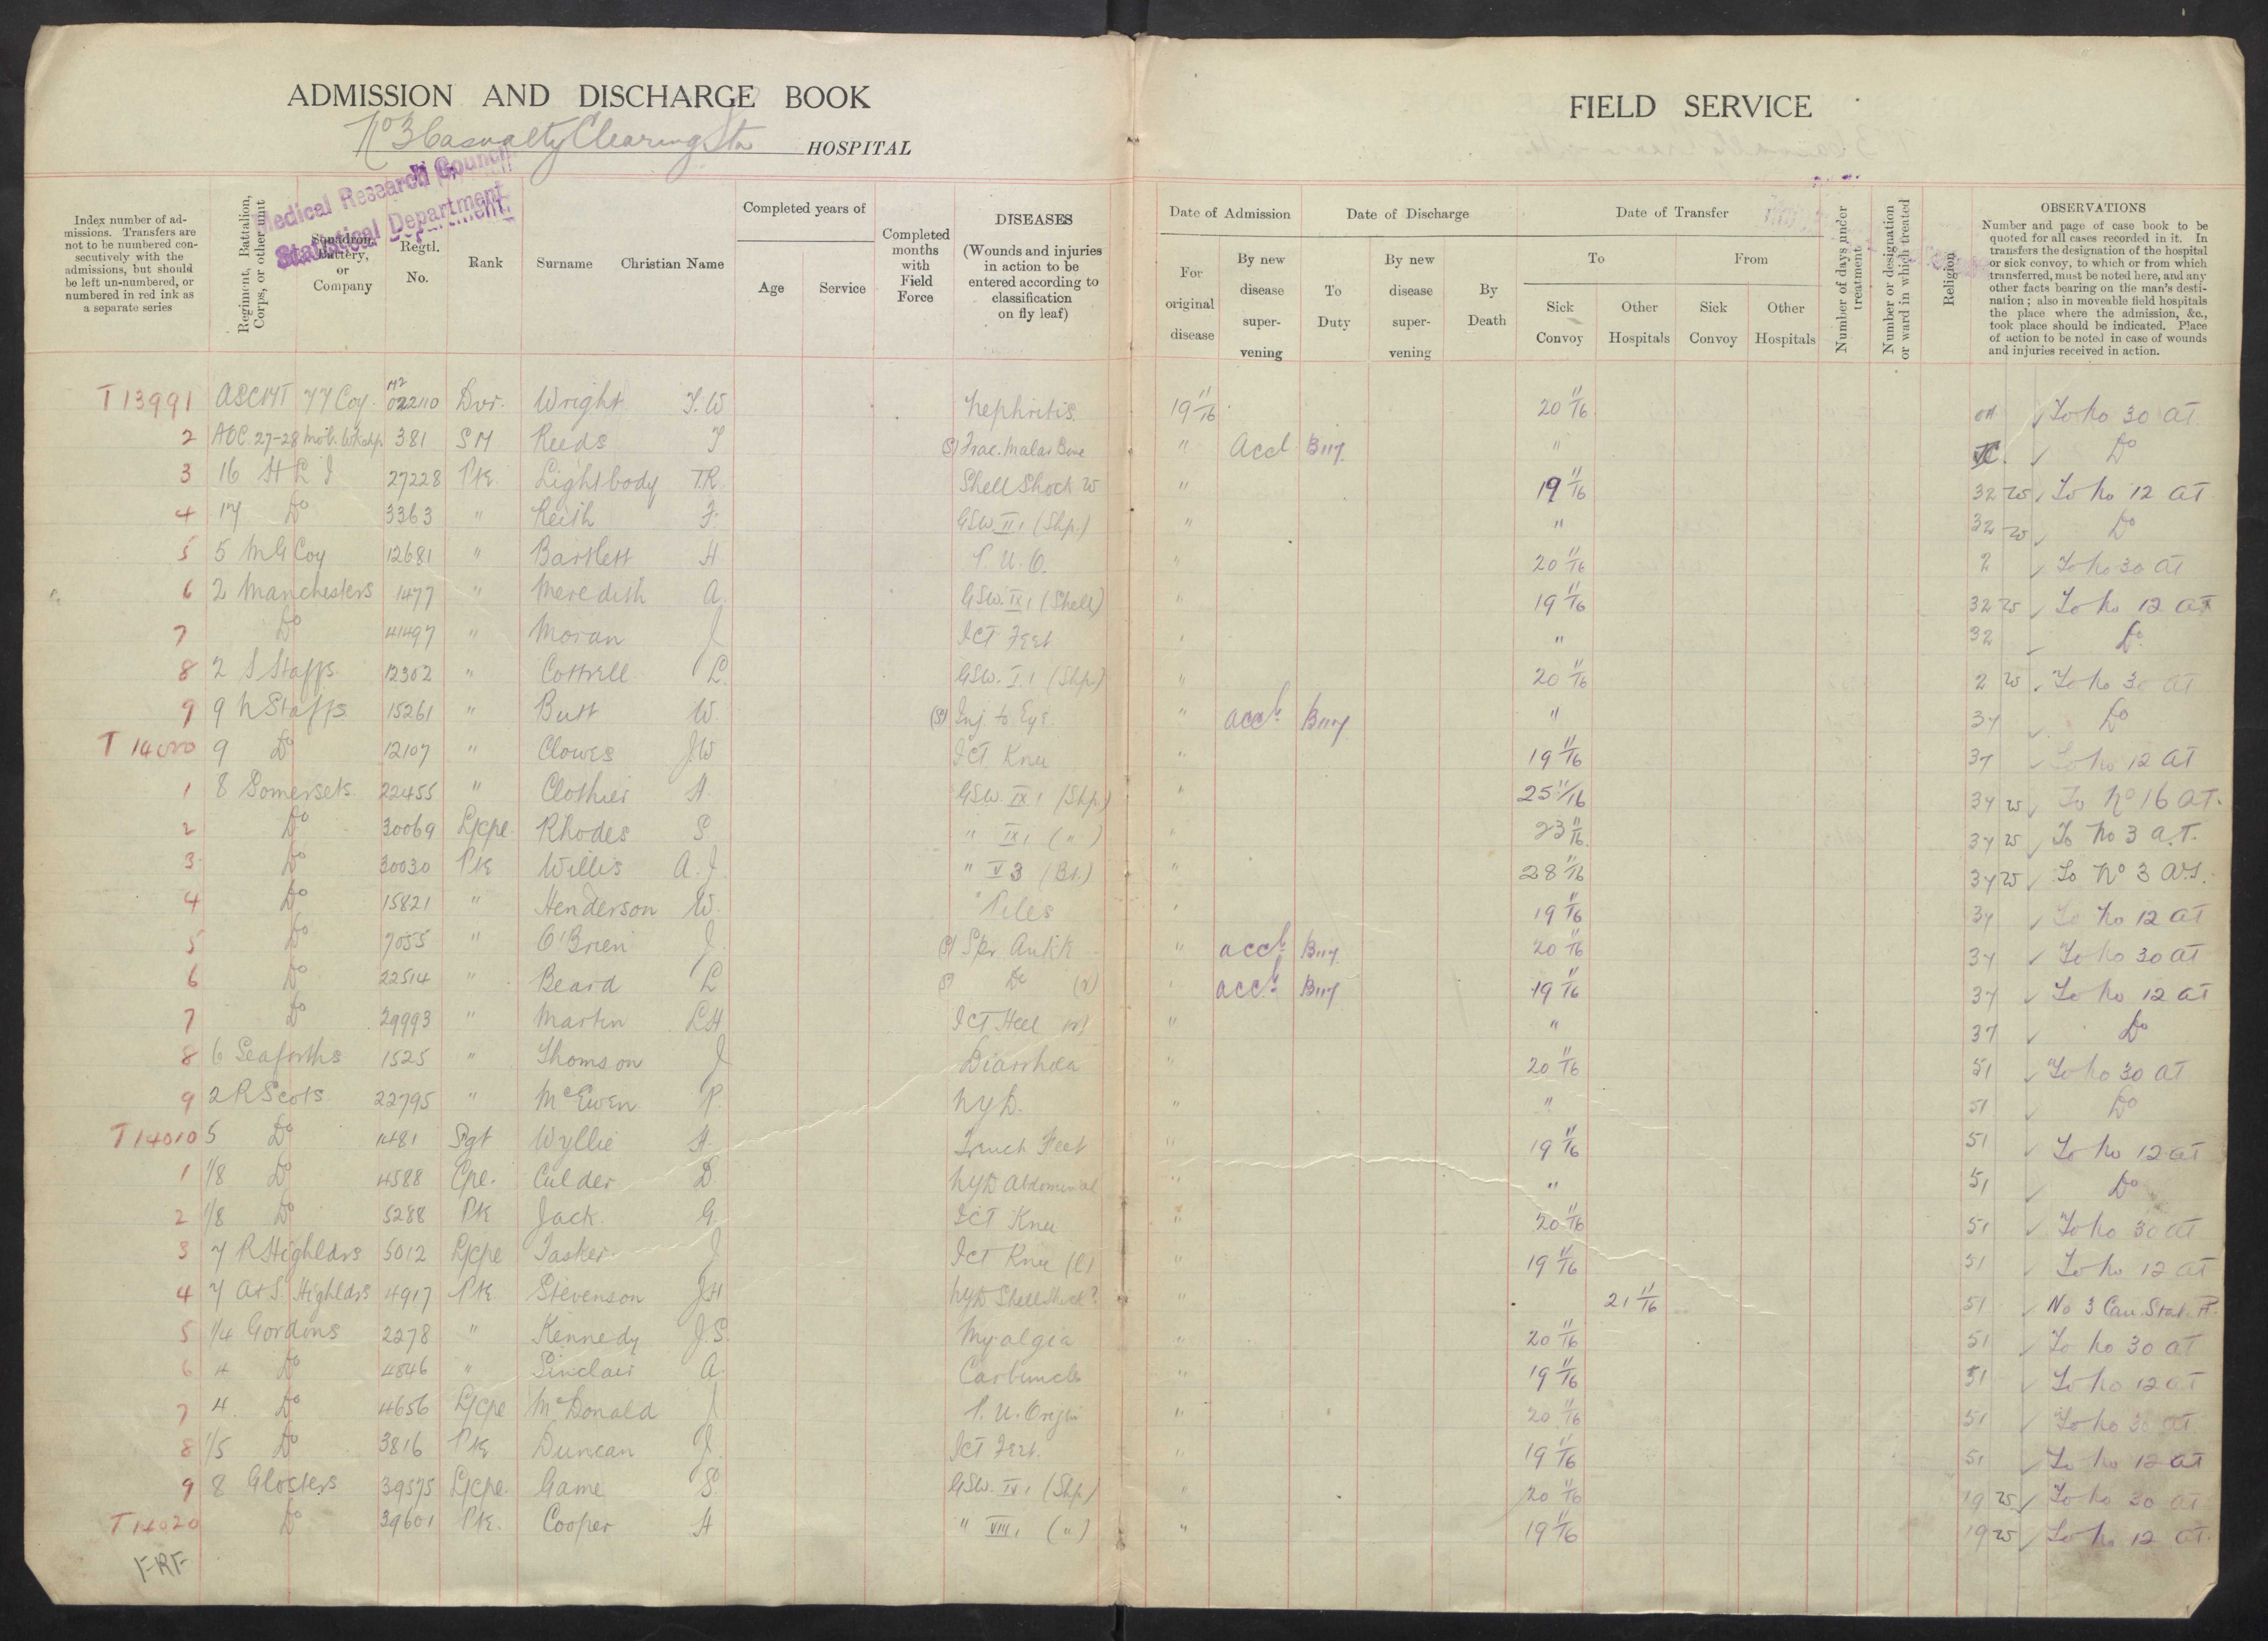 ADMISSION AND DISCHARGE BOOK
No 3 Casualty Clearing Stn HOSPITAL
FIELD SERVICE
Medical Research Council
Statistical Department.
Index number of admissions. Transfers are not to be numbered consecutively with the admissions, but should be left un-numbered, or numbered in red ink as a separate series
Regiment, Battalion, Corps, or other unit
Squadron, Battery, or Company
Regtl. No.
Rank
Surname Christian Name
Completed years of
Age Service
Completed months with Field Force
DISEASES
(Wounds and injuries in action to be entered according to classification on fly leaf)
Date of Admission
For original disease
By new disease supervening
Date of Discharge
To Duty
By new disease supervening
By Death
Date of Transfer
To From
Sick Convoy Other Hospitals Sick Convoy Other Hospitals
Number of days under treatment
Number or designation or ward in which treated
Religion
OBSERVATIONS
Number and page of case book to be quoted for all cases recorded in it. In transfers the designation of the hospital or sick convoy, to which or from which transferred, must be noted here, and any other facts bearing on the man's destination; also in moveable field hospitals the place where the admission, &c., took place should be indicated. Place of action to be noted in case of wounds and injuries received in action.
T13991 ASC MT 77 Coy. M2 022110 Dvr. Wright T.W Nephritis. 19 11/16 20 11/16 ✓ To No 30 AT
2 AOC 27-28 Mob. Wkshp 381 SM Reeds T (S) Frac. Malar Bone " Accl B117 " ✓ Do
3 16 H L I 27228 Pte Lightbody T.R. Shell Shock W " 19 11/16 32 W ✓ To No 12 AT
4 17 Do 3363 " Reith F. GSW. II 1 (Shp.) " " 32 W ✓ Do
5 5 M G Coy 12681 " Bartlett H P. U. O. " 20 11/16 2 ✓ To No 30 AT
6 2 Manchesters 1477 " Meredith A. GSW. IX 1 (Shell) " 19 11/16 32 W ✓ To No 12 AT
7 Do 41497 " Moran J ICT Feet " " 32 ✓ Do
8 2 S Staffs. 12302 " Cottrell L. GSW. I.1 (Shp.) " 20 11/16 2 W ✓ To No 30 AT
9 9 N Staffs 15261 " Butt W. (S) Inj. to Eye. " accl B117 " 37 ✓ Do
T 14000 9 Do 12107 " Clowes J.W ICT Knee " 19 11/16 37 ✓ To No 12 AT
1 8 Somersets. 22455 " Clothier H. GSW. IX 1 (Shp.) " 25 11/16 37 W ✓ To No 16 AT.
2 Do 30069 L/cpl. Rhodes S. " IX 1 (") " 23 11/16 37 W ✓ To No 3 A.T.
3 Do 30030 Pte Willis A. J. " V 3 (Bt.) " 28 11/16 37 W ✓ To No 3 A.T.
4 Do 15821 " Henderson W. Piles " 19 11/16 37 ✓ To No 12 AT
5 Do 7055 " O'Brien J. (S) Spr. Ankle " accl B117 20 11/16 37 ✓ To No 30 AT
6 Do 22514 " Beard L (S) Do (R) " accl B117 19 11/16 37 ✓ To No 12 AT
7 Do 29993 " Martin L.H ICT Heel (R) " " 37 ✓ Do
8 6 Seaforths 1525 " Thomson J Diarrhoea " 20 11/16 51 ✓ To No 30 AT
9 2 R Scots. 22795 " McEwen P. NYD. " " 51 ✓ Do
T14010 5 Do 1481 Sgt Wyllie H. Trench Feet " 19 11/16 51 To No 12 AT
1 1/8 Do 4588 Cpl. Culder D. NYD Abdominal " " 51 ✓ Do
2 1/8 Do 5288 Pte Jack. G. ICT Knee " 20 11/16 51 ✓ To No 30 AT
3 7 R Highldrs 5012 L/cpl Tasker J ICT Knee (L) " 19 11/16 51 ✓ To No 12 AT
4 7 A+S. Highldrs 4917 Pte Stevenson J.H NYD Shell Shock? " 21 11/16 51 ✓ No 3 Cau. Stat. R.
5 1/4 Gordons 2278 " Kennedy J.S. Myalgia " 20 11/16 51 ✓ To No 30 AT
6 4 Do 4846 " Sinclair A. Carbuncle " 19 11/16 51 ✓ To No 12 AT
7 4. Do 4656 L/cpl McDonald J P. U. Origin " 20 11/16 51 ✓ To No 30 AT
8 1/5 Do 3816 Pte Duncan J. ICT Feet. " 19 11/16 51 ✓ To No 12 AT
9 8 Glosters 39575 L/cpl. Game S. GSW. IX 1 (Shp.) " 20 11/16 19 W ✓ To No 30 AT
T14020 Do 39601 Pte. Cooper H " VIII 1 (") " 19 11/16 19 W ✓ To No 12 AT.
FRF